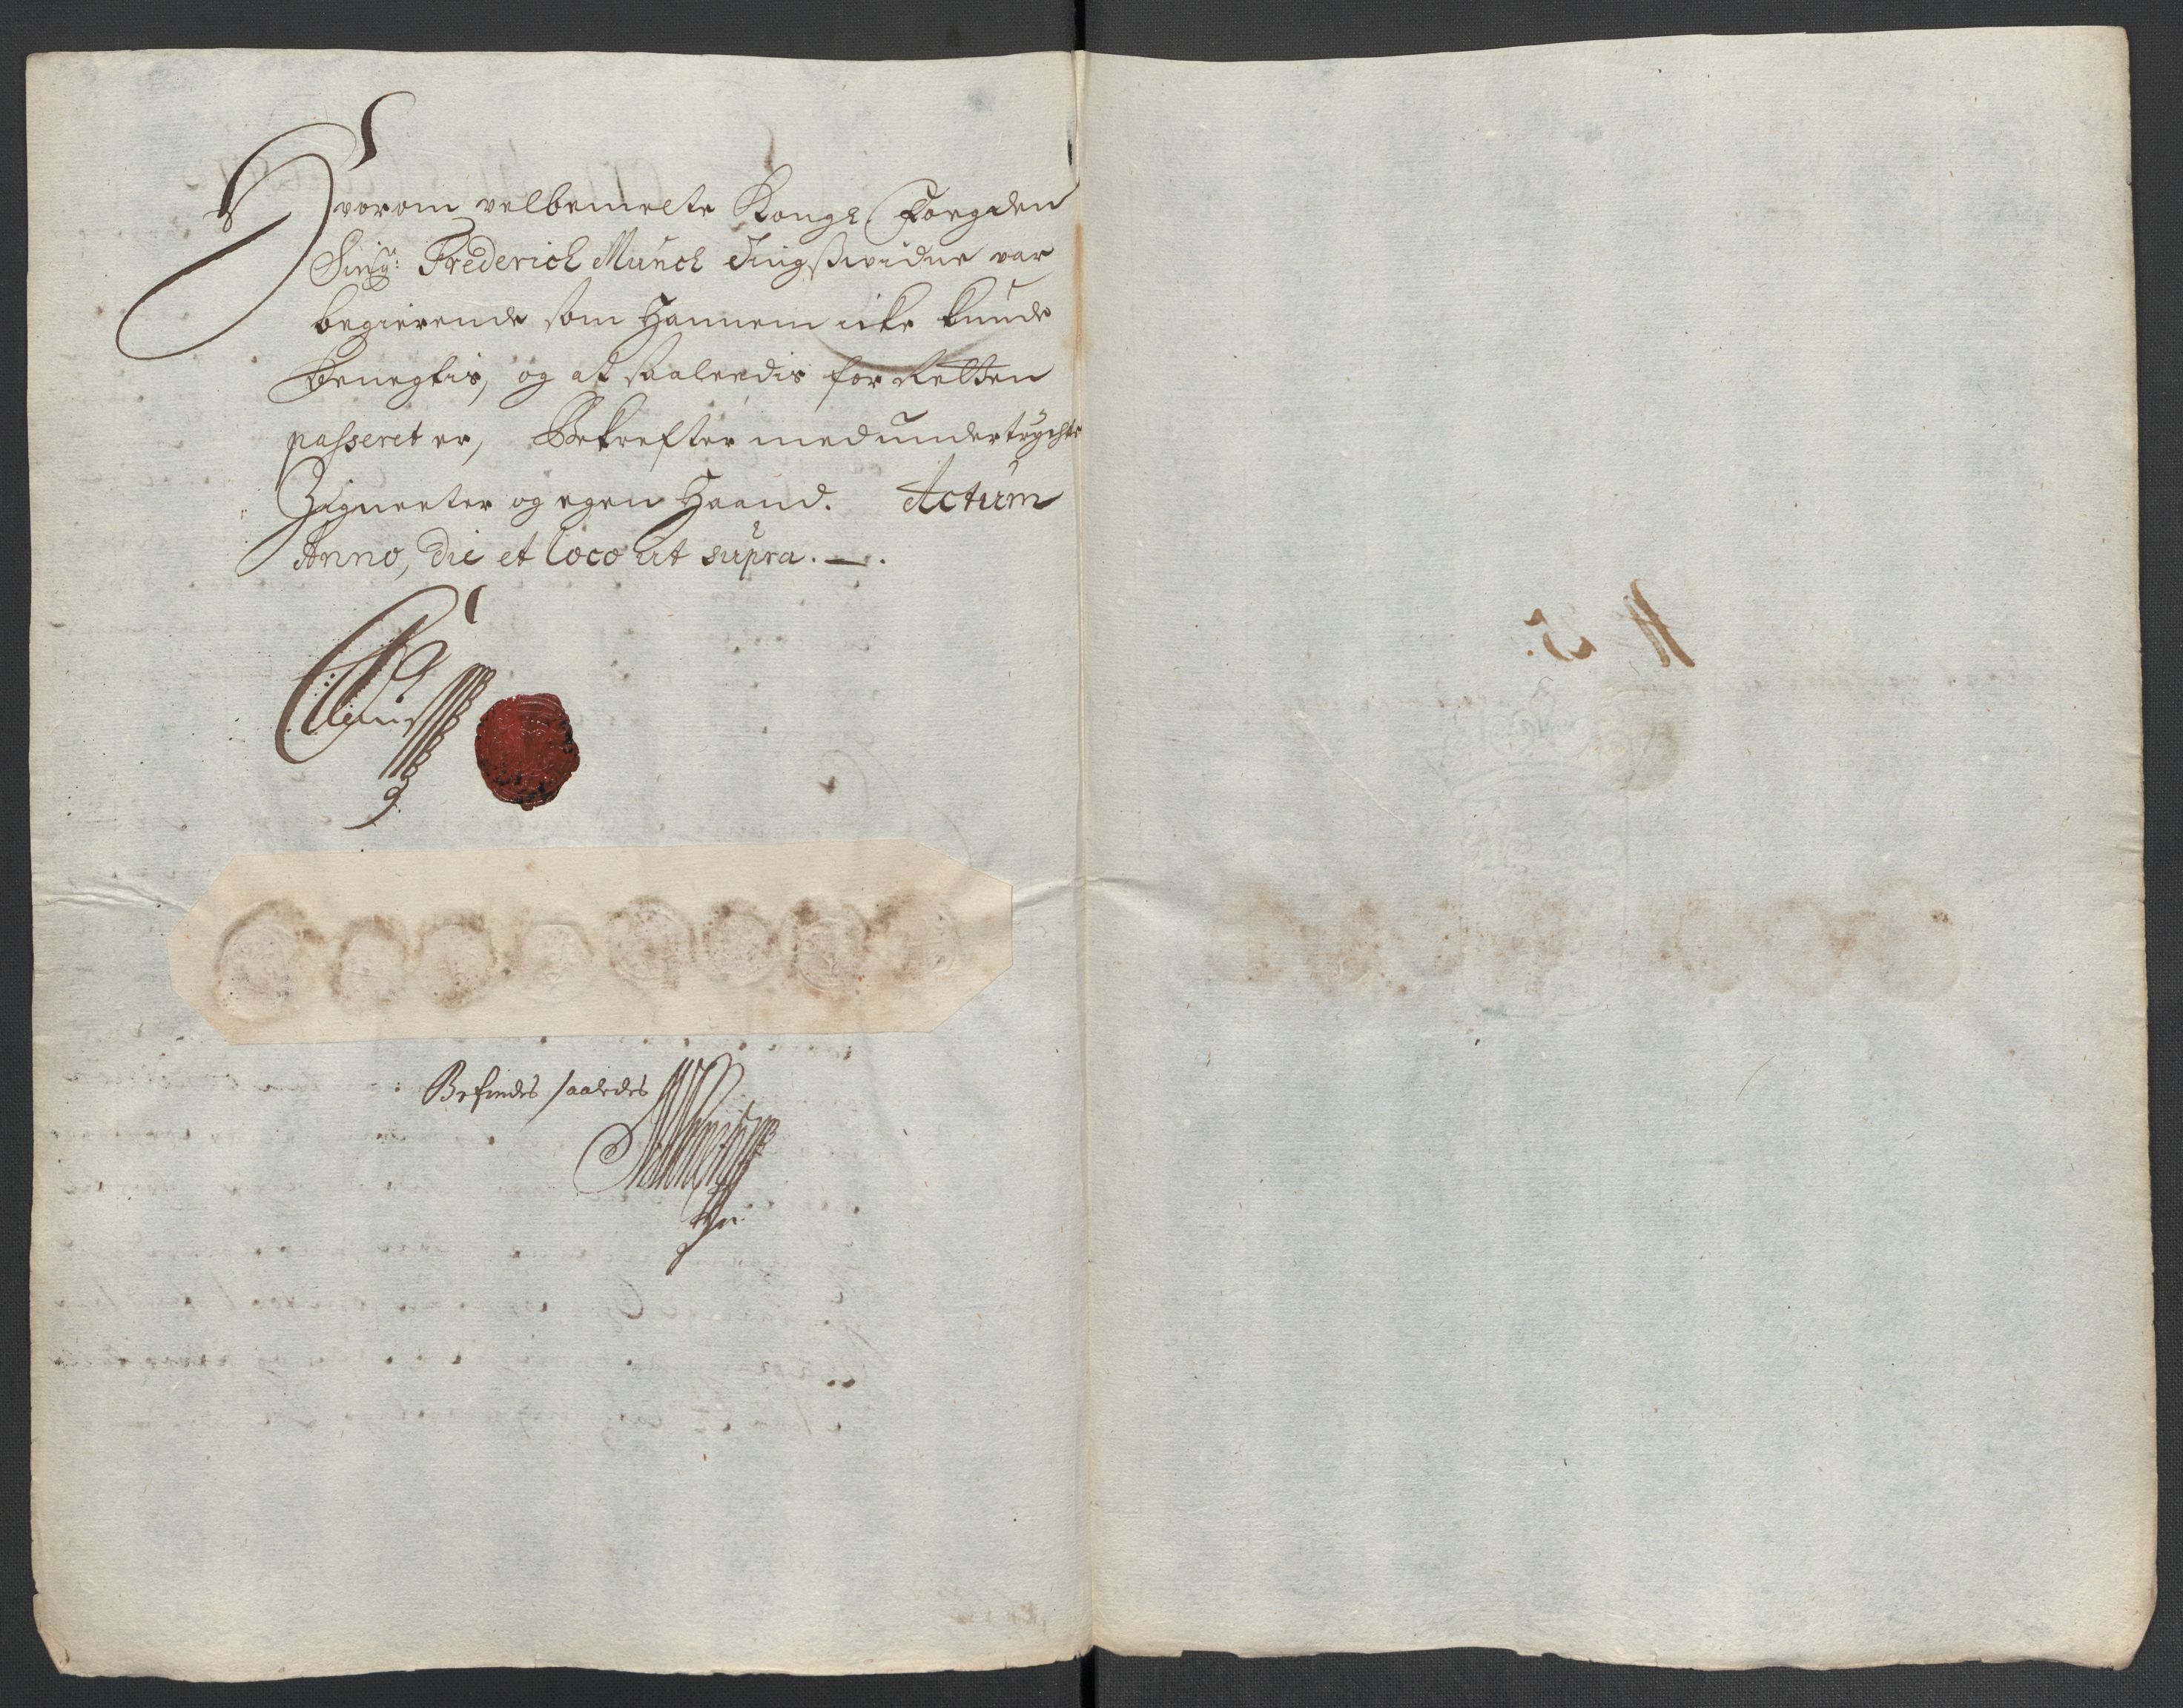 Hvorom velbemelte Kongl Foegden
Sing: Frederich Munch Tingsvidne var
begierende som Hannem icke kunde
Benegtis, og at saaleedis for Retten
passeret er, Bekrefter med undertrychte
Zigneeter og egen Haand. Actum
Anno, die et loco ut supra. —.
Befindes saaledes
N 5.